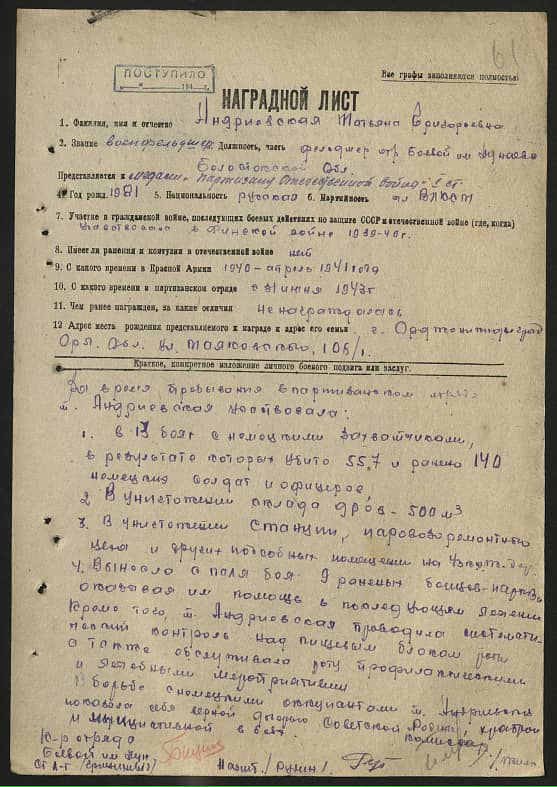 61
ПОСТУПИЛО
194 г.
Все графы заполняются полностью
НАГРАДНОЙ ЛИСТ
1. Фамилия, имя и отчество Андриевская Татьяна Григорьевна
2. Звание военфельдшер Должность, часть фельдшер отр. Боевой им Дунаева
Белостокской Обл.
Представляется к медали „Партизану Отечественной войны" I ст
4. Год рожд. 1921 5. Национальность русская 6. Партийность чл ВЛКСМ
7. Участие в гражданской войне, последующих боевых действиях по защите СССР и отечественной войне (где, когда)
участвовала в Финской войне 1939-40г.
8. Имеет ли ранения и контузии в отечественной войне нет
9. С какого времени в Красной Армии 1940 - апрель 1941 года
10. С какого времени в партизанском отряде с июня 1943г
11. Чем ранее награжден, за какие отличия не награждалась
12 Адрес место рождения представляемого к награде и адрес его семьи г. Орджоникидзеград
Орл. Обл. ул Маяковского, 106/1.
Краткое, конкретное изложение личного боевого подвига или заслуг.
За время пребывания в партизанском отряде
т. Андриевская участвовала:
1. В 13 боях с немецкими захватчиками,
в результате которых убито 557 и ранено 140
немецких солдат и офицеров,
2 В унистожении склада дров - 500 м³
3. В унистожении станции, паровозоремонтного
цеха и других подсобных помещении на
4. Вынесла с поля боя 9 раненых бойцов-
оказывая им помощь в последующем лечении
Кроме того, т. Андриевская проводила системати-
ческий контроль над пищевым блоком роты
а также обслуживала роту профилактическими
и лечебными мероприятиями
В борьбе с немецкими оккупантами т. Андриевская
показала себя верной дочерью Советской Родины, храброй
и инициативной в боях.
К-р отряда Комиссар
Боевой им Дун.
Ст Л-т Нашт. / Рузин /